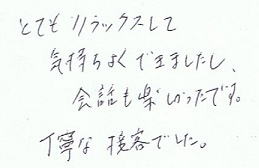 とてもリラックスして
気持ちよくできましたし、
会話も楽しかったです。
丁寧な接客でした。